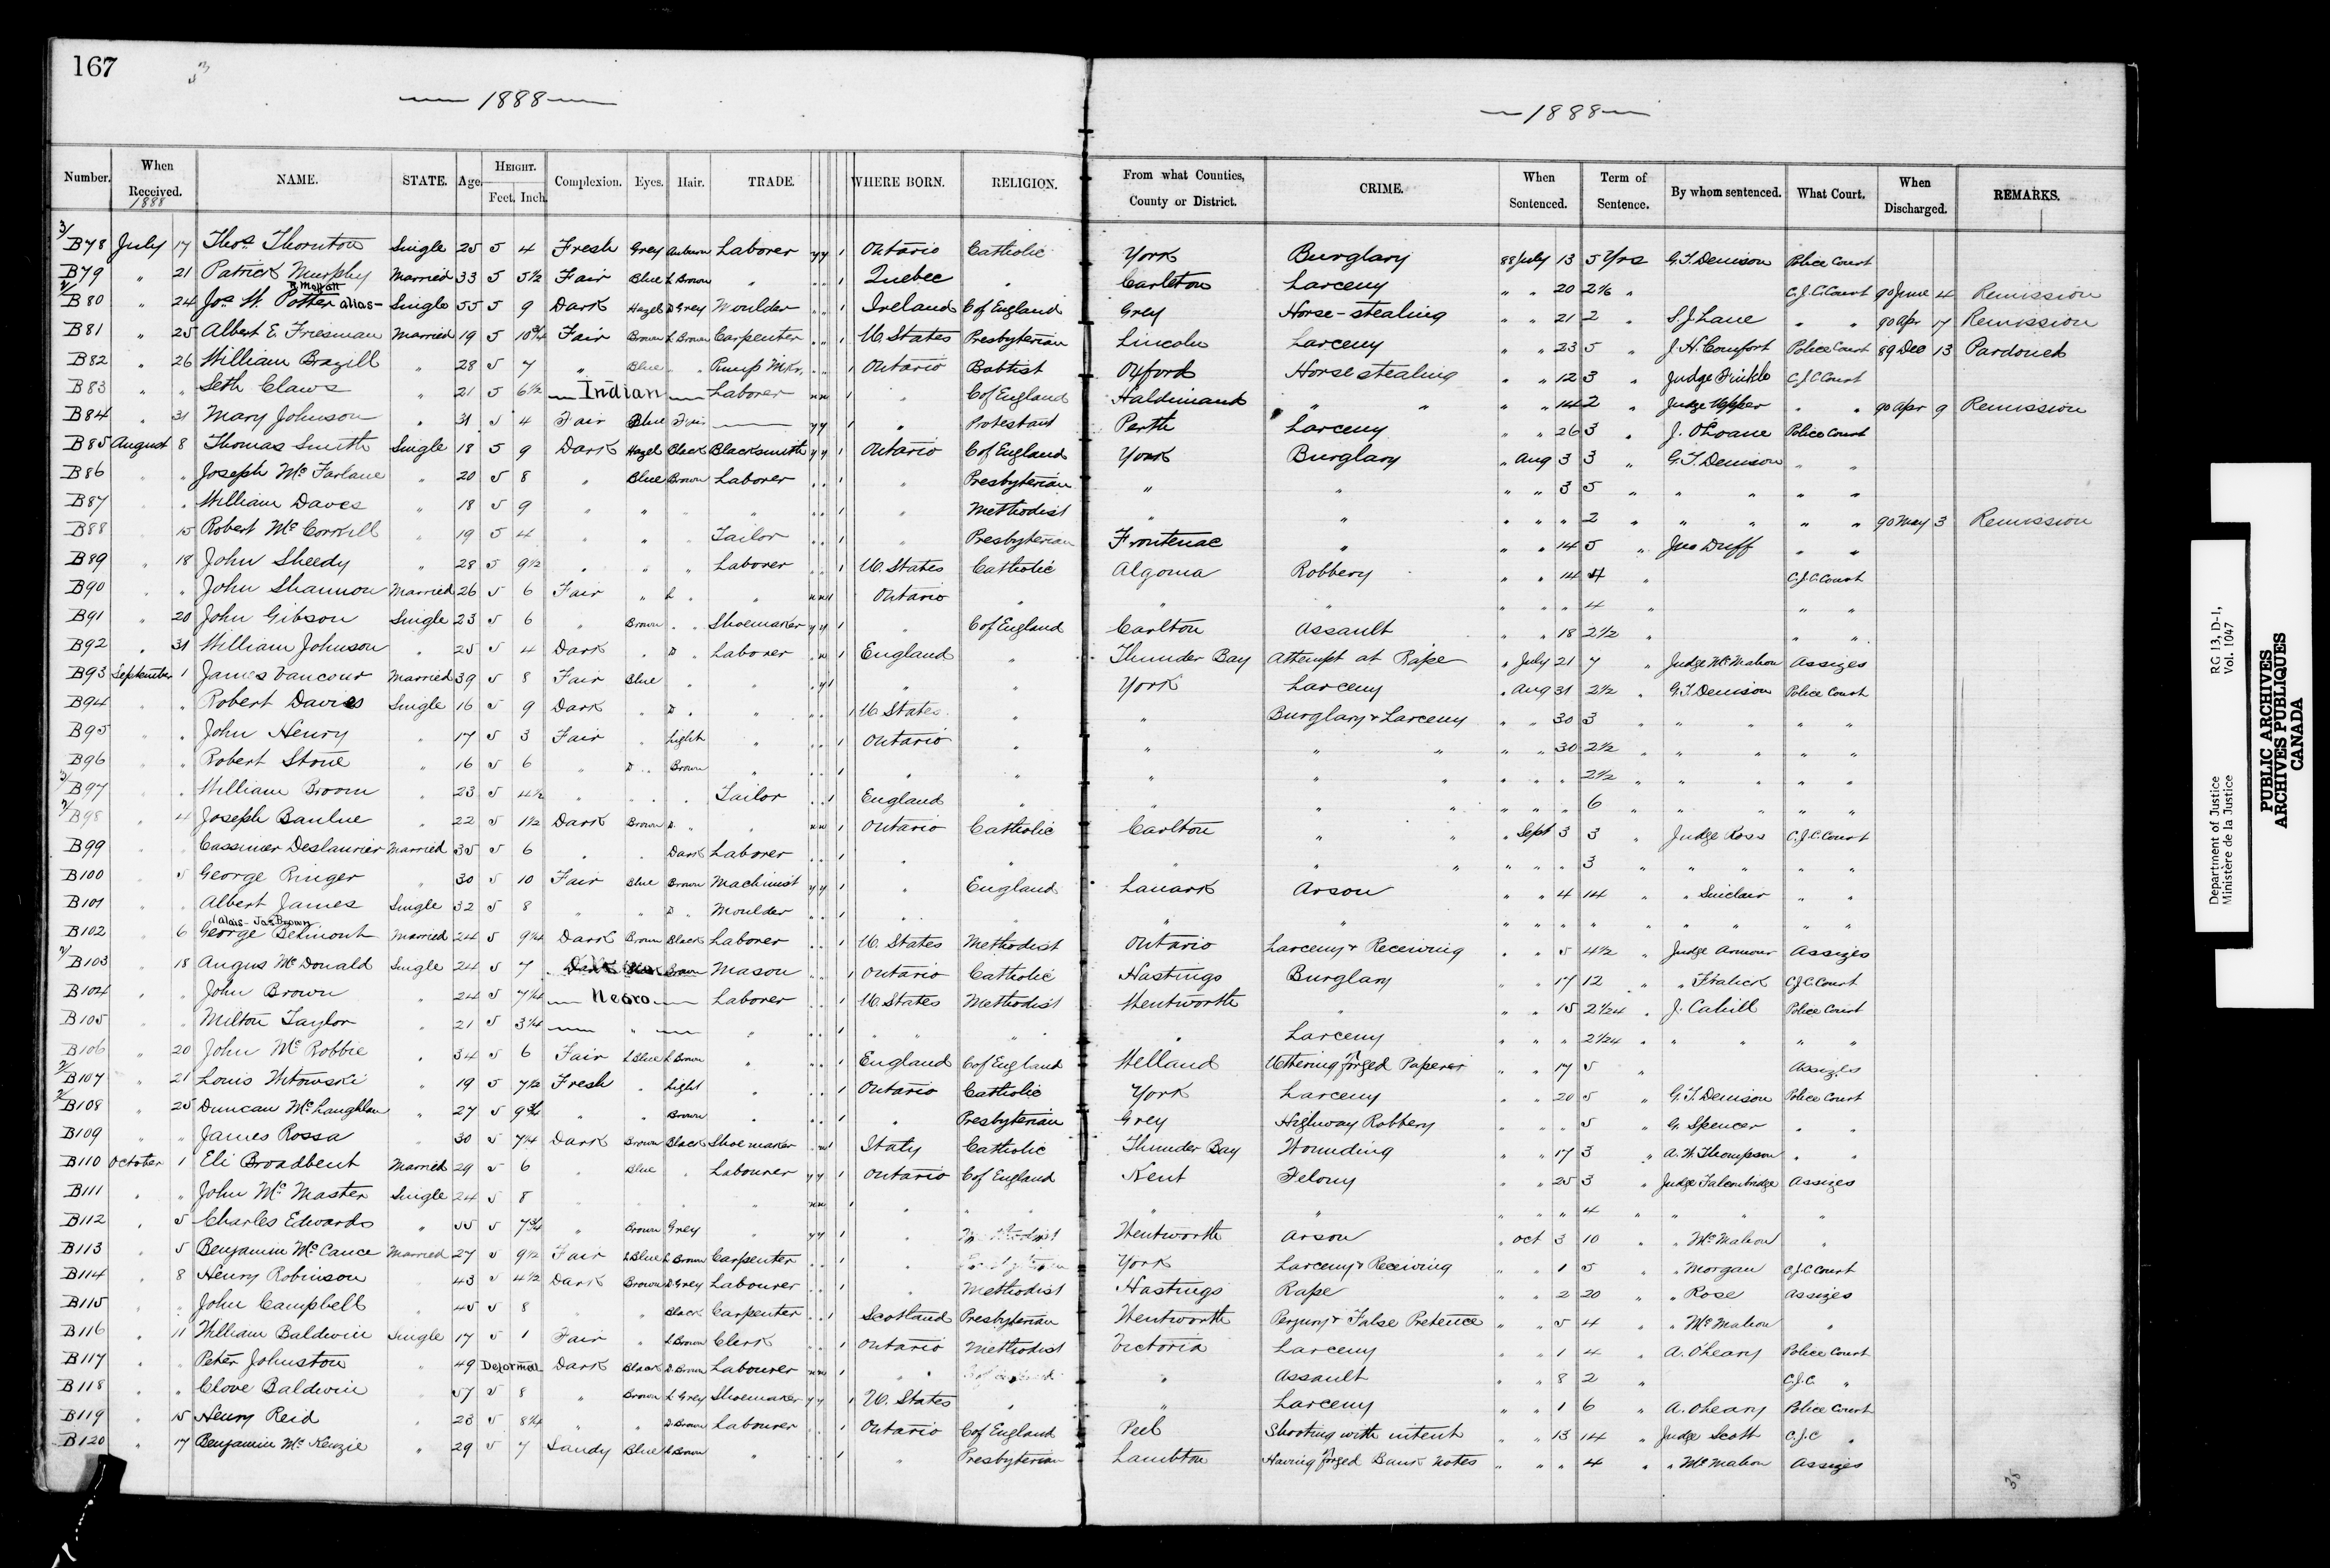 167
— 1888 —
— 1888 —
Number. When Received. 1888 NAME. STATE. Age. HEIGHT. Feet. Inch. Complexion. Eyes. Hair. TRADE. WHERE BORN. RELIGION. From what Counties, County or District. CRIME. When Sentenced. Term of Sentence. By whom sentenced. What Court. When Discharged. REMARKS.
B78 July 17 Thos Thornton Single 25 5 4 Fresh Grey Auburn Laborer y y 1 Ontario Catholic York Burglary 88 July 13 5 Yrs G.T. Denison Police Court
B79 " 21 Patrick Murphy Married 33 5 5½ Fair Blue L Brown " " " 1 Quebec " Carleton Larceny " " 20 2/6 " C.J.C. Court 90 June 4 Remission
B80 " 24 Jos W. Potter alias R Moffatt Single 55 5 9 Dark Hazel D Grey Moulder " " 1 Ireland C of England Grey Horse-stealing " " 21 2 " S.J. Lane " " 90 Apr 17 Remission
B81 " 25 Albert E. Friesman Married 19 5 10¾ Fair Brown L Brown Carpenter " " 1 U. States Presbyterian Lincoln Larceny " " 23 5 " J.H. Comfort Police Court 89 Dec 13 Pardoned
B82 " 26 William Brazill " 28 5 7 " Blue " " Pump Mkr. " " 1 Ontario Babtist Oxford Horse stealing " " 12 3 " Judge Finkle C.J.C Court
B83 " " Seth Claws " 21 5 6½ — Indian — Laborer n n 1 " C of England Haldimand " " " " 14 2 " Judge Upper " " 90 Apr 9 Remission
B84 " 31 Mary Johnson " 31 5 4 Fair Blue Fair — y y 1 " Protestant Perth Larceny " " 26 3 " J. O'Loane Police Court
B85 August 8 Thomas Smith Single 18 5 9 Dark Hazel Black Blacksmith y y 1 Ontario C of England York Burglary " Aug 3 3 " G.T. Denison " "
B86 " " Joseph McFarlane " 20 5 8 " Blue Brown Laborer " " 1 " Presbyterian " " " " 3 5 " " " " "
B87 " William Daves " 18 5 9 " " " " " " 1 " Methodist " " " " " 2 " " " " " 90 May 3 Remission
B88 15 Robert McCorkill " 19 5 4 " " " Tailor " " 1 " Presbyterian Frontenac " " " 14 5 " Jno Duff " "
B89 " 18 John Sheedy " 28 5 9½ " " " Laborer " " 1 U. States Catholic Algoma Robbery " " 14 4 " C.J.C. Court
B90 " " John Shannon Married 26 5 6 Fair " L " " n n 1 Ontario " " " " " " 4 " " "
B91 " 20 John Gibson Single 23 5 6 " Brown " " Shoemaker y y 1 " C of England Carlton Assault " " 18 2½ " " "
B92 " 31 William Johnson " 25 5 4 Dark " D " Laborer " n 1 England " Thunder Bay Attempt at Rape " July 21 7 " Judge McMahon Assizes
B93 September 1 James Vancour Married 39 5 8 Fair Blue " " " y 1 " " York Larceny " Aug 31 2½ " G.T Denison Police Court
B94 " " Robert Davies Single 16 5 9 Dark " D " " " " 1 U States " " Burglary & Larceny " " 30 3 " " " " "
B95 " " John Henry " 17 5 3 Fair " Light " " " 1 Ontario " " " " " " 30 2½ " " " " "
B96 " " Robert Stone " 16 5 6 " D " Brown " " " 1 " " " " " " " " 2½ " " " " "
B97 " William Broom " 23 5 4½ " " " " Tailor " " 1 England " " " " " " " 6 " " " " "
B98 " 4 Joseph Baulne " 22 5 1½ Dark Brown D. " " n n 1 Ontario Catholic Carlton " " " Sept 3 3 " Judge Ross C.J.C. Court
B99 " Cassimer Deslaurier Married 35 5 6 " " Dark Laborer " " 1 " " " " " " " " 3 " " " " "
B100 " 5 George Ringer " 30 5 10 Fair Blue Brown Machinist y y 1 " England Lanark Arson " " 4 14 " " Sinclair " "
B101 " Albert James Single 32 5 8 " " D " Moulder " " 1 " " " " " " " " " " " " "
B102 " 6 George Belmont (alais - Jas Brown Married 24 5 9¼ Dark Brown Black Laborer " " 1 U. States Methodist Ontario Larceny & Receiving " " 5 4½ " Judge Armour Assizes
B103 " 18 Angus McDonald Single 24 5 7 Dark Brown Mason " " 1 Ontario Catholic Hastings Burglary " " 17 12 " " Fralick C.J.C. Court
B104 " " John Brown " 24 5 7¼ — Negro — Laborer " " 1 U. States Methodist Wentworth " " " 15 2 1/24 " J. Cahill Police Court
B105 " " Milton Taylor " 21 5 3¼ — " — " " " 1 " " " " Larceny " " " 2 1/24 " " " " "
B106 " 20 John McRobbie " 34 5 6 Fair L Blue L Brown " " " 1 England C of England Welland Uttering forged Paperer " " 17 5 " Assizes
B107 " 21 Louis Witowski " 19 5 7½ Fresh " Light " " " 1 Ontario Catholic York Larceny " " 20 5 " G.T. Denison Police Court
B108 " 25 Duncan McLaughlan " 27 5 9¾ " " Brown " " " 1 " Presbyterian Grey Highway Robbery " " " 5 " G. Spencer " "
B109 " " James Rossa " 30 5 7¼ Dark Brown Black Shoemaker " n 1 Italy Catholic Thunder Bay Wounding " " 17 3 " A.W. Thompson " "
B110 October 1 Eli Broadbent Married 29 5 6 " Blue " Labourer y y 1 Ontario C of England Kent Felony " " 25 3 " Judge Falconbridge Assizes
B111 " " John McMaster Single 24 5 8 " " " " n n 1 " " " " " " " 4 " " " "
B112 " 5 Charles Edwards " 55 5 7¾ " Brown Grey " y y 1 " Methodist Wentworth Arson " Oct 3 10 " " McMahon "
B113 " 5 Benjamin McCance Married 27 5 9½ Fair L Blue L Brown Carpenter " " 1 " York Larceny & Receiving " " 1 5 " " Morgan C.J.C Court
B114 " 8 Henry Robinson 43 5 4½ Dark Brown D Grey Labourer " " 1 " Methodist Hastings Rape " " 2 20 " " Rose Assizes
B115 " " John Campbell " 45 5 8 " " Black Carpenter " " 1 Scotland Presbyterian Wentworth Perjury & False Pretence " " 5 4 " " McMahon "
B116 " 11 William Baldwin Single 17 5 1 Fair " L Brown Clerk " " 1 Ontario Methodist Victoria Larceny " " 1 4 " A. O'Leary Police Court
B117 " " Peter Johnston " 49 Deformed Dark Black D. Brown Labourer n n 1 " " Assault " " 8 2 " C.J.C. "
B118 " " Clove Baldwin 57 5 8 " Brown L Grey Shoemaker y y 1 U. States " " Larceny " " 1 6 " A. O'Leary Police Court
B119 " 15 Henry Reid " 23 5 8¼ " " D Brown Labourer " " 1 Ontario C of England Peel Shooting with intent " " 13 14 " Judge Scott C.J.C "
B120 " 17 Benjamin McKenzie " 29 5 7 Sandy Blue L Brown " " 1 " Presbyterian Lambton Having forged Bank Notes " " " 4 " " McMahon Assizes
Department of Justice RG 13, D-1,
Ministère de la Justice Vol. 1047
PUBLIC ARCHIVES
ARCHIVES PUBLIQUES
CANADA